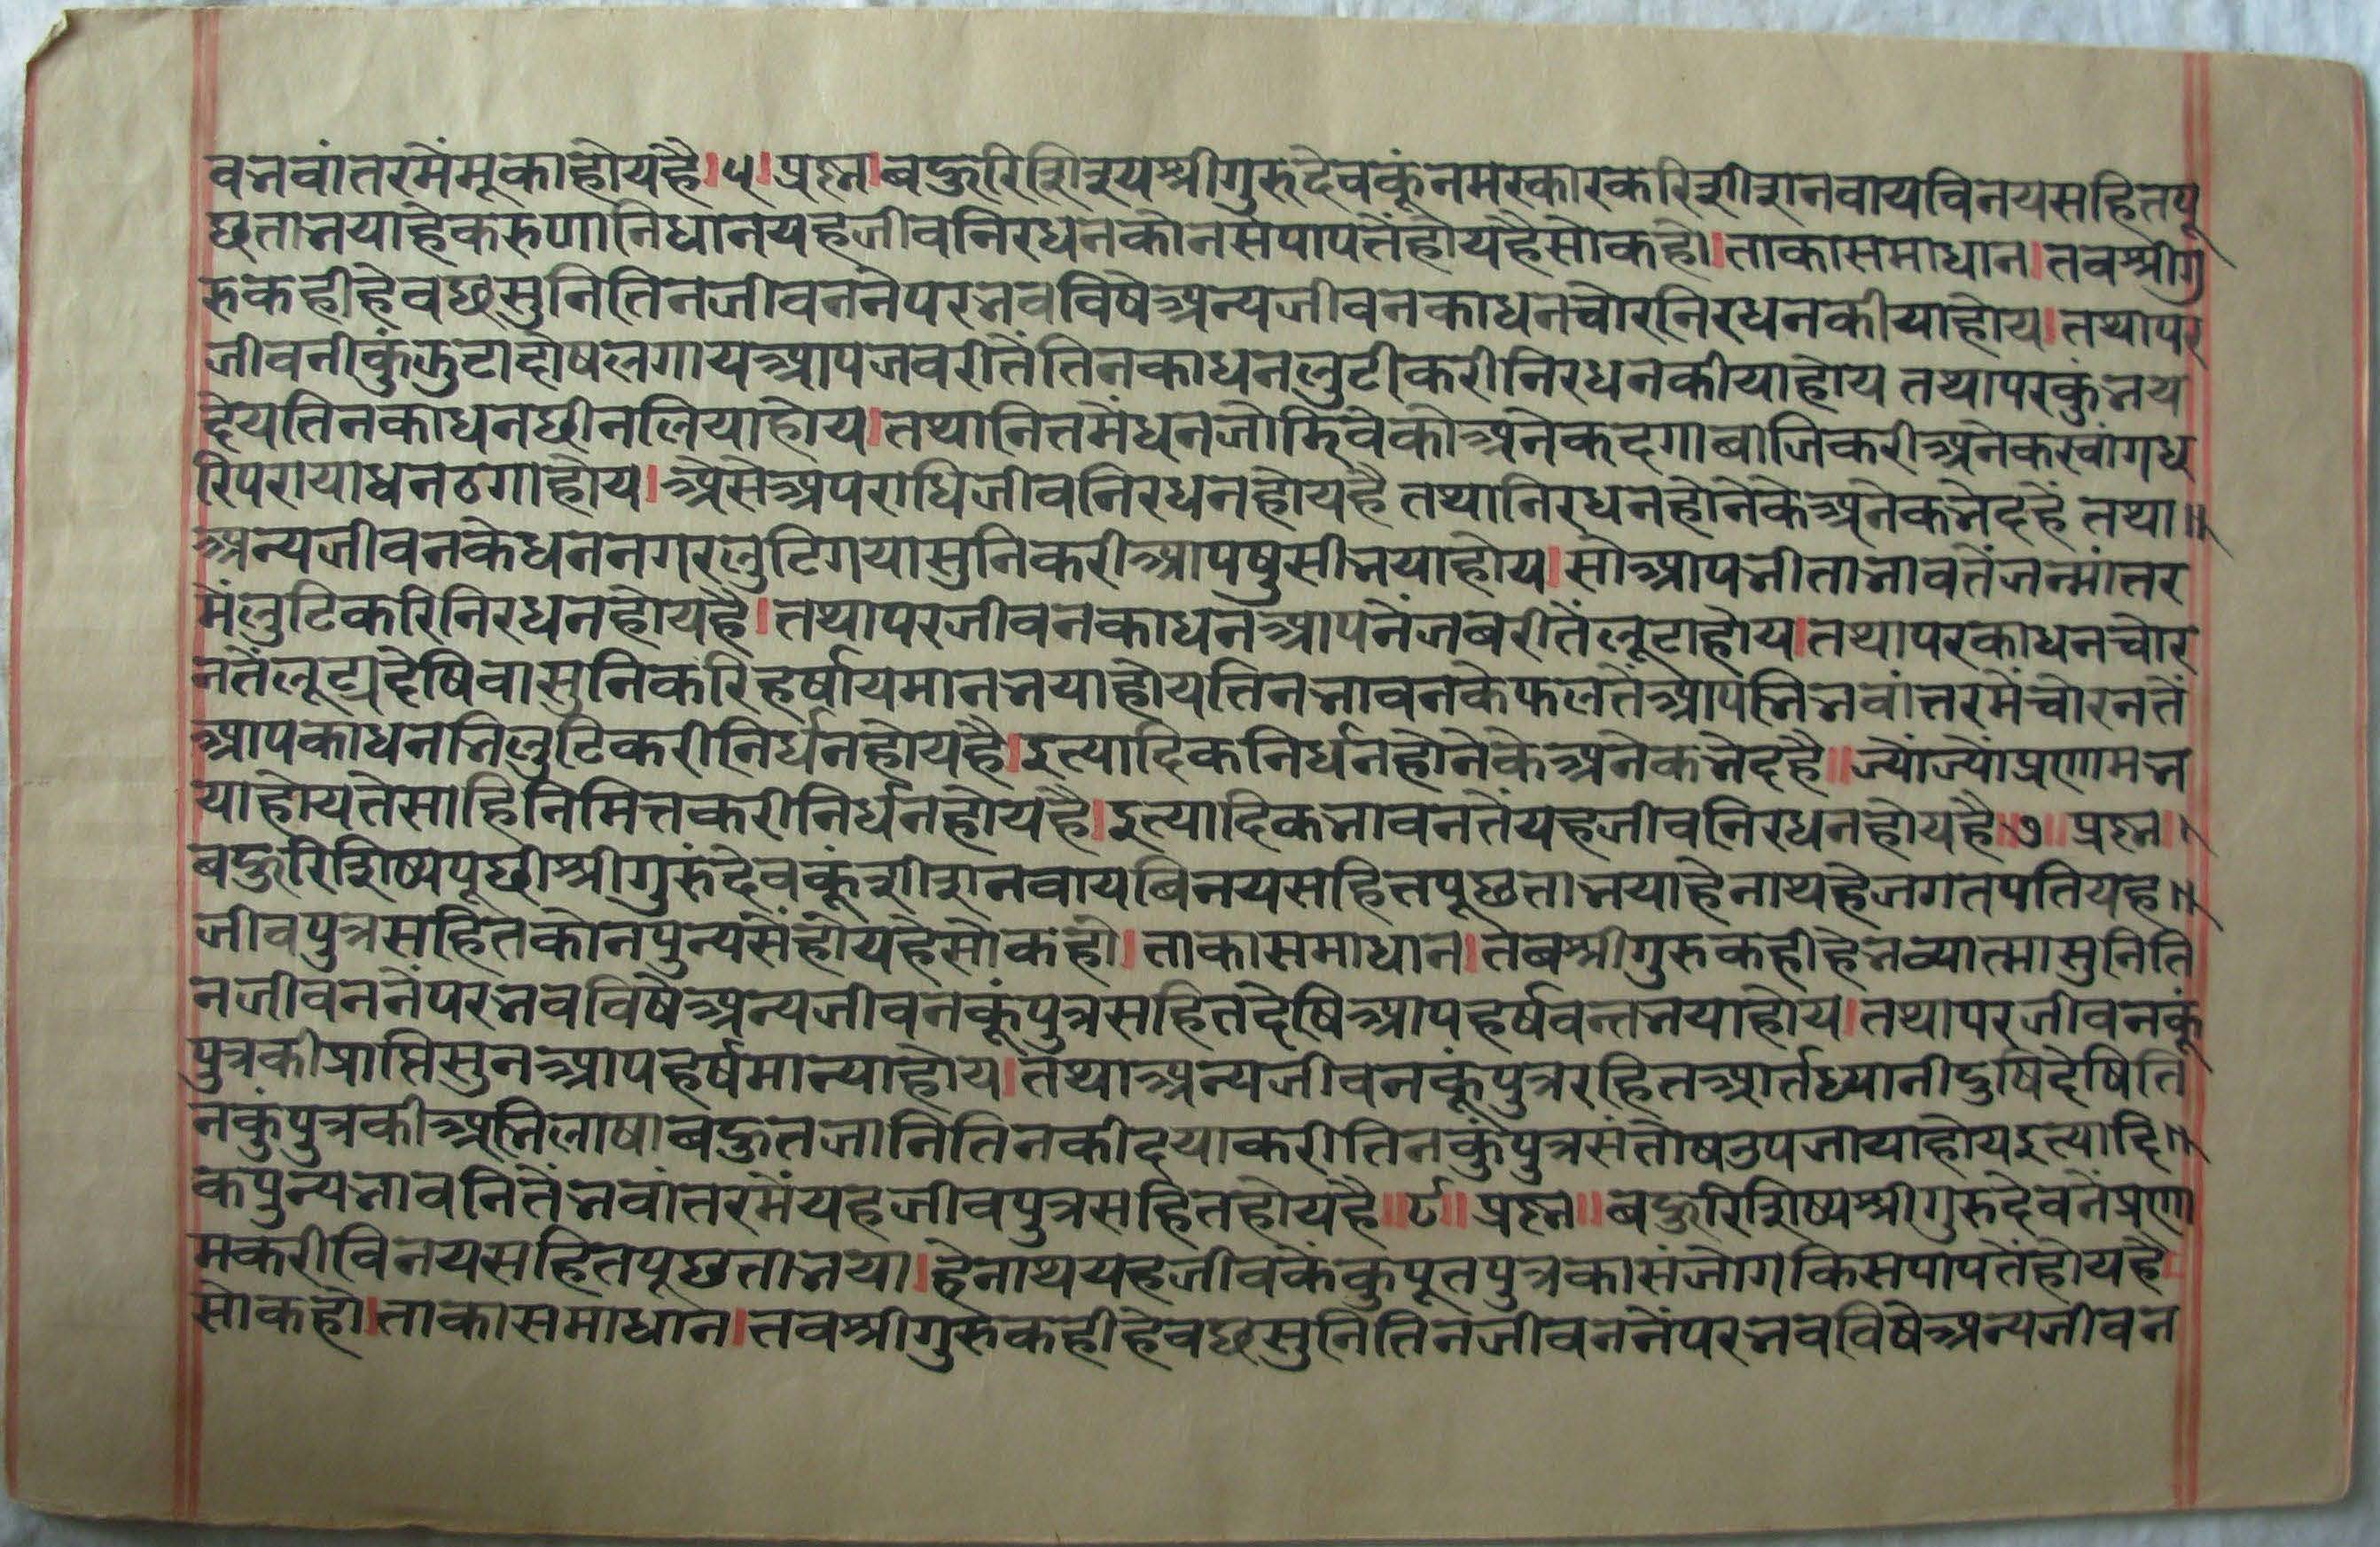 वभवांतरमैंमूकाहोयहै।५।प्रश्न।बहुरिशिश्यश्रीगुरुदेवकूंनमस्कारकरिशीशनवायविनयसहितपू
छताभयाहेकरुणानिधानयहजीवनिरधनकोनसेपापतैंहोयहैसोकहो।ताकासमाधान।तवश्रीगु
रुकहीहेवछसुनितिनजीवननैपरभवविषैअन्यजीवनकाधनचोरनिरधनकीयाहोय।तथापर
जीवनीकुंझुटादोषलगायआपजवरीतैंतिनकाधनलुटीकरीनिरधनकीयाहोय तथापरकुंभय
देयतिनकाधनछीनलियाहोय।तथानितमैंधनजोडिवेकोअनेकदगाबाजिकरीअनेकस्वांगध
रिपरायाधनठगाहोय।अैसेअपराधिजीवनिरधनहोयहै तथानिरधनहोनेकेअनेकभेदहैं तथा॥
अन्यजीवनकेधननगरलुटिगयासुनिकरीआपषुसीभयाहोय।सोआपभीताभावतैंजन्मांतर
मैंलुटिकरिनिरधनहोयहै।तथापरजीवनकाधनआपनैंजबरीतैंलूटाहोय।तथापरकाधनचोर
नतैंलूट्यदेषिवासुनिकरिहर्षायमानभयाहोयतिनभावनकेफलतैंआपभिभवांतरमैंचोरनतैं
आपकाधनभिलुटिकरीनिर्धनहोयहै।इत्यादिकनिर्धनहोनेकेअनेकभेदहै॥ज्योंज्योंप्रणामभ
याहोयतेसाहिनिमित्तकरीनिर्धनहोयहै।इत्यादिकभावनतैंयहजीवनिरधनहोयहै॥७॥प्रश्न॥
बहुरिशिष्यपूछीश्रीगुरुंदेवकूंशीशनवायबिनयसहितपूछताभयाहेनाथहेजगतपतियह॥
जीवपुत्रसहितकोनपुन्यसैंहोयहैसोकहो।ताकासमाधान।तबश्रीगुरुकहीहेभव्यात्मासुनिति
नजीवननैंपरभवविषैअन्यजीवनकूंपुत्रसहितदेषिआपहर्षवन्तभयाहोय।तथापरजीवनकूं
पुत्रकीप्राप्तिसुनआपहर्षमान्याहोय।तथाअन्यजीवनकूंपुत्ररहितआर्तध्यानीदुषिदेषिति
नकुंपुत्रकीअभिलाषाबहुतजानितिनकीदयाकरीतिनकुंपुत्रसंतोषउपजायाहोयइत्यादि॥
कपुन्यभावनितैंभवांतरमैंयहजीवपुत्रसहितहोयहै॥८॥प्रश्न॥बहुरिशिष्यश्रीगुरुदेवनैंप्रणा
मकरीविनयसहितपूछताभया।हेनाथयहजीवकैंकुपूतपुत्रकासंजोगकिसपापतैंहोयहै
सोकहो।ताकासमाधान।तवश्रीगुरुकहीहेवछसुनितिनजीवननैंपरभवविषैअन्यजीवन